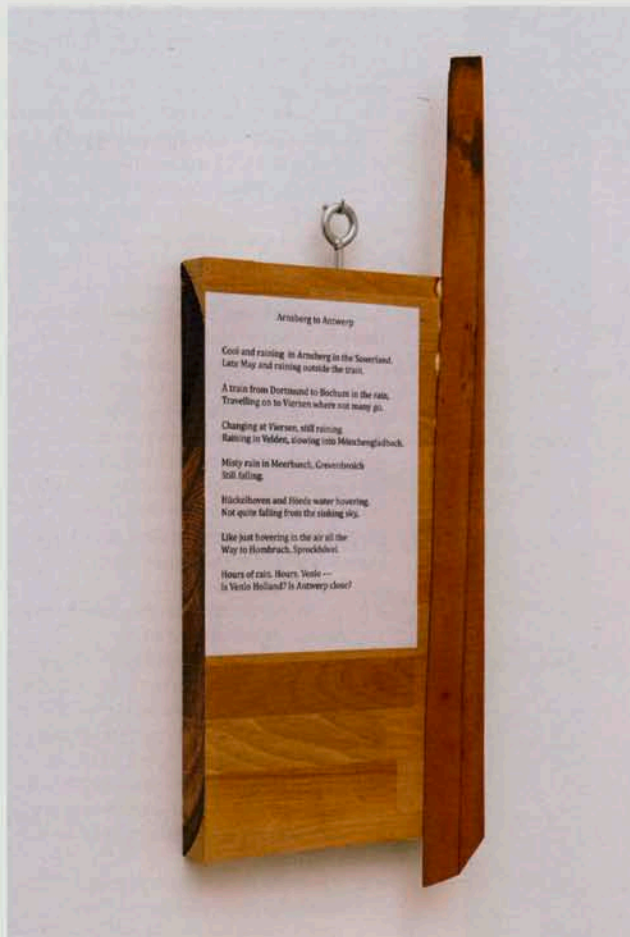 Arnsberg to Antwerp
Cool and raining in Arnsberg in the Sauerland.
Late May and raining outside the train.
A train from Dortmund to Bochum in the rain,
Travelling on to Viersen where not many go.
Changing at Viersen, still raining.
Raining in Velden, slowing into Mönchengladbach.
Misty rain in Meerbusch, Grevenbroich
Still falling.
Hückelhoven and Hörde water hovering.
Not quite falling from the sinking sky.
Like just hovering in the air all the
Way to Hombruch, Sprockhövel.
Hours of rain. Hours. Venlo —
Is Venlo Holland? Is Antwerp close?